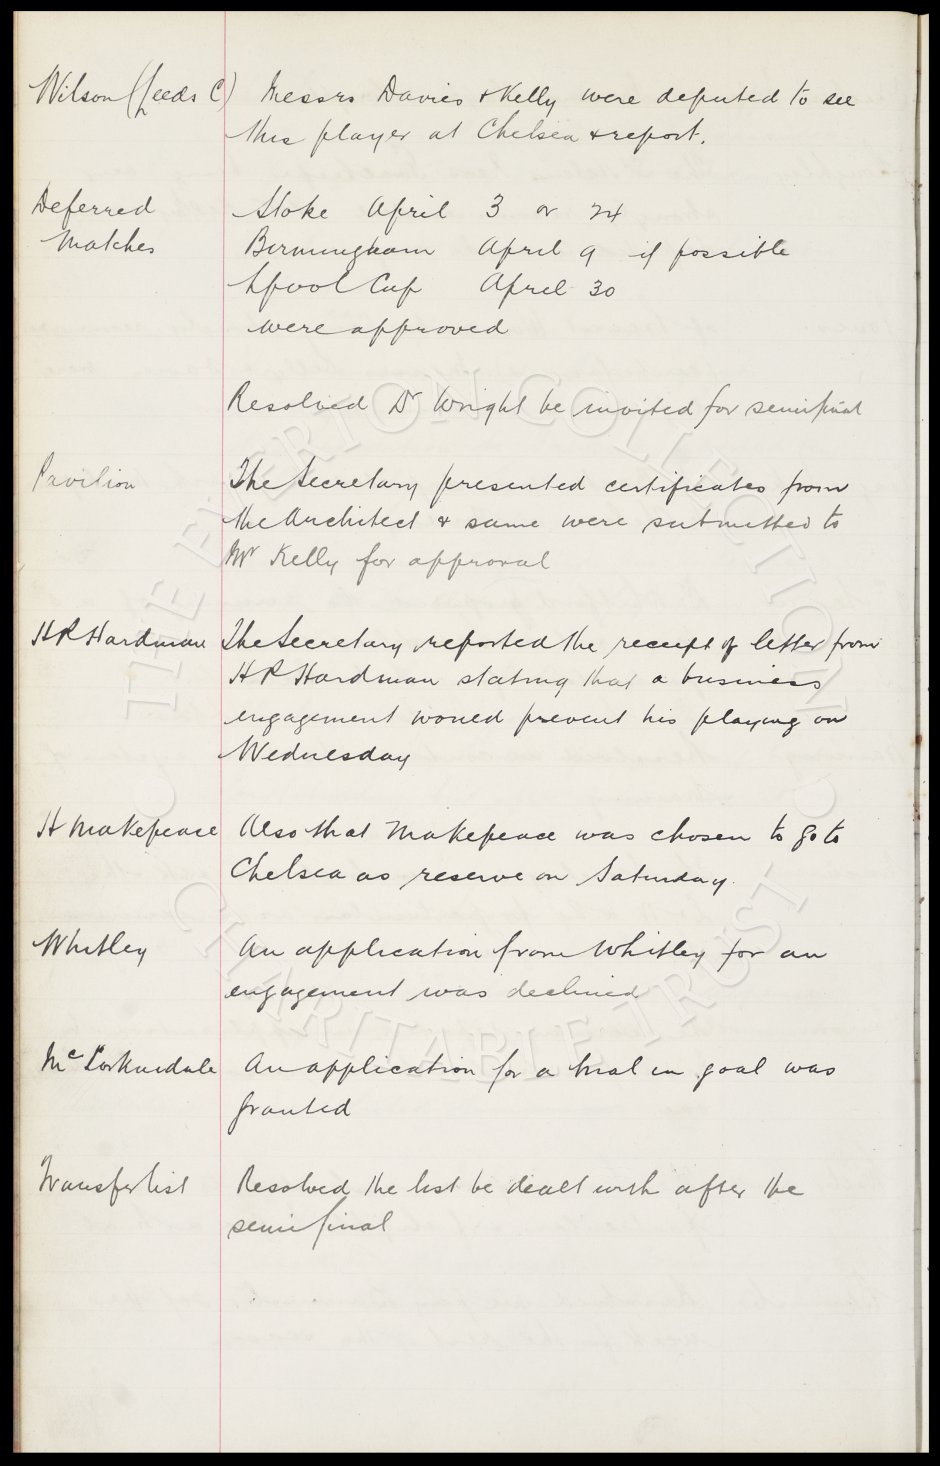 Wilson (Leeds C) Messrs Davies & Kelly were deputed to see
this player at Chelsea & report.
Deferred Stoke April 3 or 24
Matches Birmingham April 9 if possible
Lpool Cup April 30
were approved
Resolved Dr Wright be invited for semifinal
Pavilion The Secretary presented certificates from
the Architect & same were submitted to
Mr Kelly for approval
H P Hardman The Secretary reported the receipt of letter from
H P Hardman stating that a business
engagement would prevent his playing on
Wednesday
H Makepeace Also that Makepeace was chosen to go to
Chelsea as reserve on Saturday.
Whitley An application from Whitley for an
engagement was declined
Mc Corkindale An application for a trial in goal was
granted
Transfer list Resolved the list be dealt with after the
semi final
THE EVERTON COLLECTION
CHARITABLE TRUST